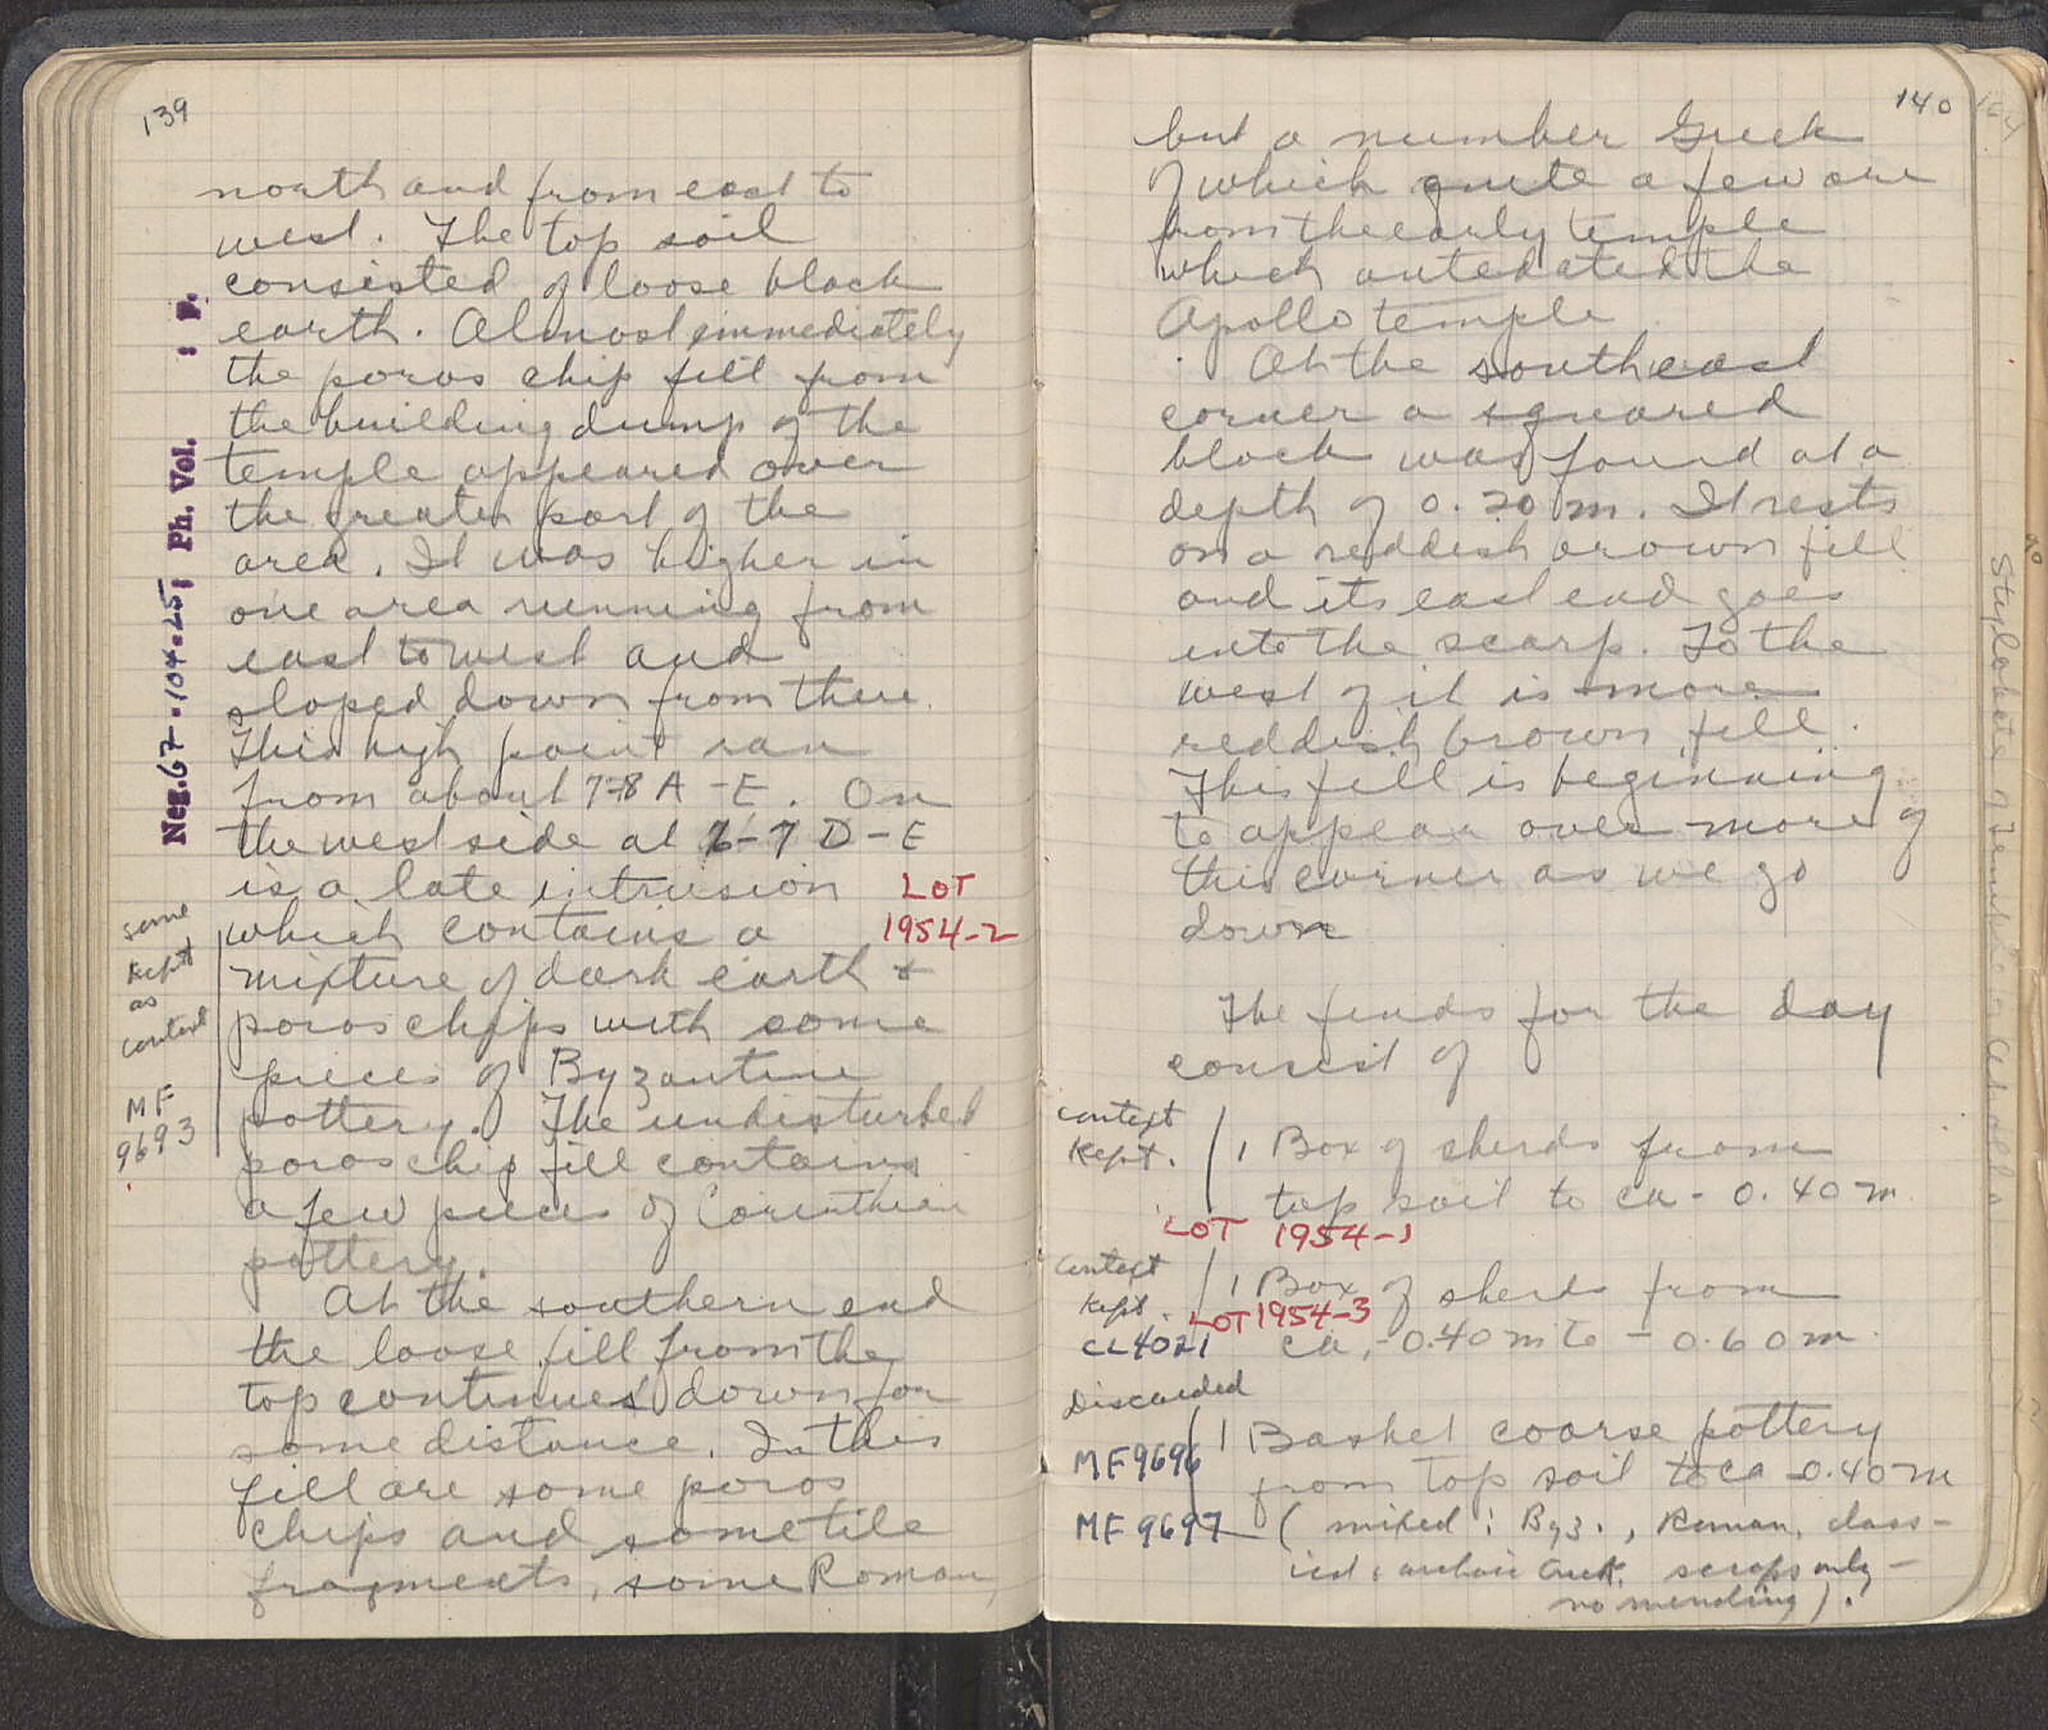 139
north and from east to
west. The top soil
consisted of loose black
earth. Almost immediately
the poros chip fill from
the building dump of the
temple appeared over
the greater part of the
area. It was higher in
one area running from
east to west and
sloped down from there.
This high point ran
from about 7-8 A-E. On
the west side at 6-7 D-E
is a late intrusion
LOT
1954-2
which contains a
mixture of dark earth &
poros chips with some
pieces of Byzantine
pottery. The undisturbed
poros chip fill contains
a few pieces of Corinthian
pottery.
At the southern end
the loose fill from the
top continues down for
some distance. In this
fill are some poros
chips and some tile
fragments, some Roman,
some
kept
as
context
MF
9693
Neg. 67-104-25; Ph. Vol. : p.
140
but a number Greek
of which quite a few are
from the early temple
which antedated the
Apollo temple
At the southeast
corner a squared
block was found at a
depth of 0.20 m. It rests
on a reddish brown fill
and its east end goes
into the scarp. To the
west of it is more
reddish brown fill.
This fill is beginning
to appear over more of
this corner as we go
down
The finds for the day
consist of
context
kept.
1 Box of sherds from
top soil to ca - 0.40 m
LOT 1954-1
context
kept.
1 Box of sherds from
LOT 1954-3
CL4021
ca. - 0.40 m to - 0.60 m.
Discarded
1 Basket coarse pottery
MF9696
from top soil to ca -0.40 m
MF 9697
(mixed: Byz., Roman, class-
ical & archaic Greek. scraps only -
no mending).
164